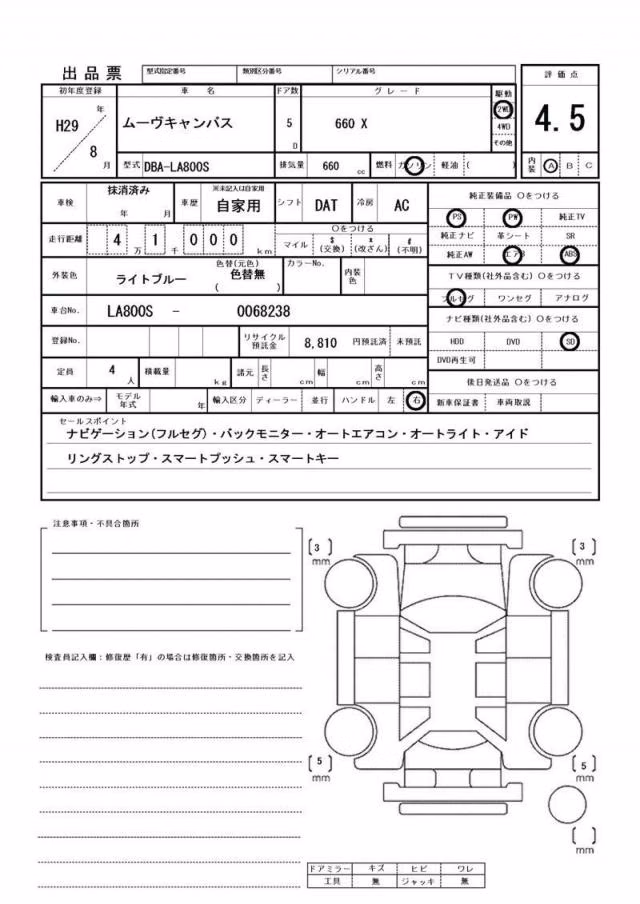 出品票 型式指定番号 類別区分番号 シリアル番号 評価点
初年度登録 車名 ドア数 グレード 駆動
H29 年 ムーヴキャンバス 5 D 660 X 2WD 4.5
8 月 4WD
その他
型式 DBA-LA800S 排気量 660 cc 燃料 ガソリン 軽油 ( ) 内装 A B C
車検 抹消済み 年 月 車歴 ※未記入は自家用 自家用 シフト DAT 冷房 AC 純正装備品 ○をつける
PS PW 純正TV
走行距離 4 万 1 千 000 km ○をつける
マイル $ (交換) x (改ざん) # (不明)
純正ナビ 革シート SR
純正AW エアB ABS
外装色 ライトブルー 色替(元色) 色替無 ( ) カラーNo. 内装色
TV種類(社外品含む) ○をつける
フルセグ ワンセグ アナログ
車台No. LA800S - 0068238
ナビ種類(社外品含む) ○をつける
登録No. リサイクル預託金 8,810 円預託済 未預託
HDD DVD SD
DVD再生可
定員 4 人 積載量 kg 諸元 長さ cm 幅 cm 高さ cm
後日発送品 ○をつける
輸入車のみ⇒ モデル年式 年 輸入区分 ディーラー 並行 ハンドル 左 右 新車保証書 車両取説
セールスポイント
ナビゲーション(フルセグ)・バックモニター・オートエアコン・オートライト・アイド
リングストップ・スマートプッシュ・スマートキー
注意事項・不具合箇所
[3] mm
[3] mm
検査員記入欄：修復歴「有」の場合は修復箇所・交換箇所を記入
[5] mm
[5] mm
[ ] mm
ドアミラー キズ ヒビ ワレ
工具 無 ジャッキ 無